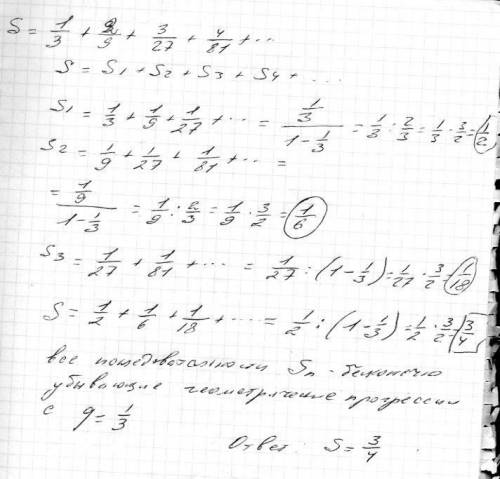 S = 1/3 + 2/9 + 3/27 + 4/81 + ...
S = S1 + S2 + S3 + S4 + ...
S1 = 1/3 + 1/9 + 1/27 + ... = (1/3)/(1 - 1/3) = 1/3 : 2/3 = 1/3 · 3/2 = 1/2
S2 = 1/9 + 1/27 + 1/81 + ... =
= (1/9)/(1 - 1/3) = 1/9 : 2/3 = 1/9 · 3/2 = 1/6
S3 = 1/27 + 1/81 + ... = 1/27 : (1 - 1/3) = 1/27 · 3/2 = 1/18
S = 1/2 + 1/6 + 1/18 + ... = 1/2 : (1 - 1/3) = 1/2 · 3/2 = 3/4
все Sn - бесконечно
убывающие геометрические прогрессии
с q = 1/3
Ответ: S = 3/4